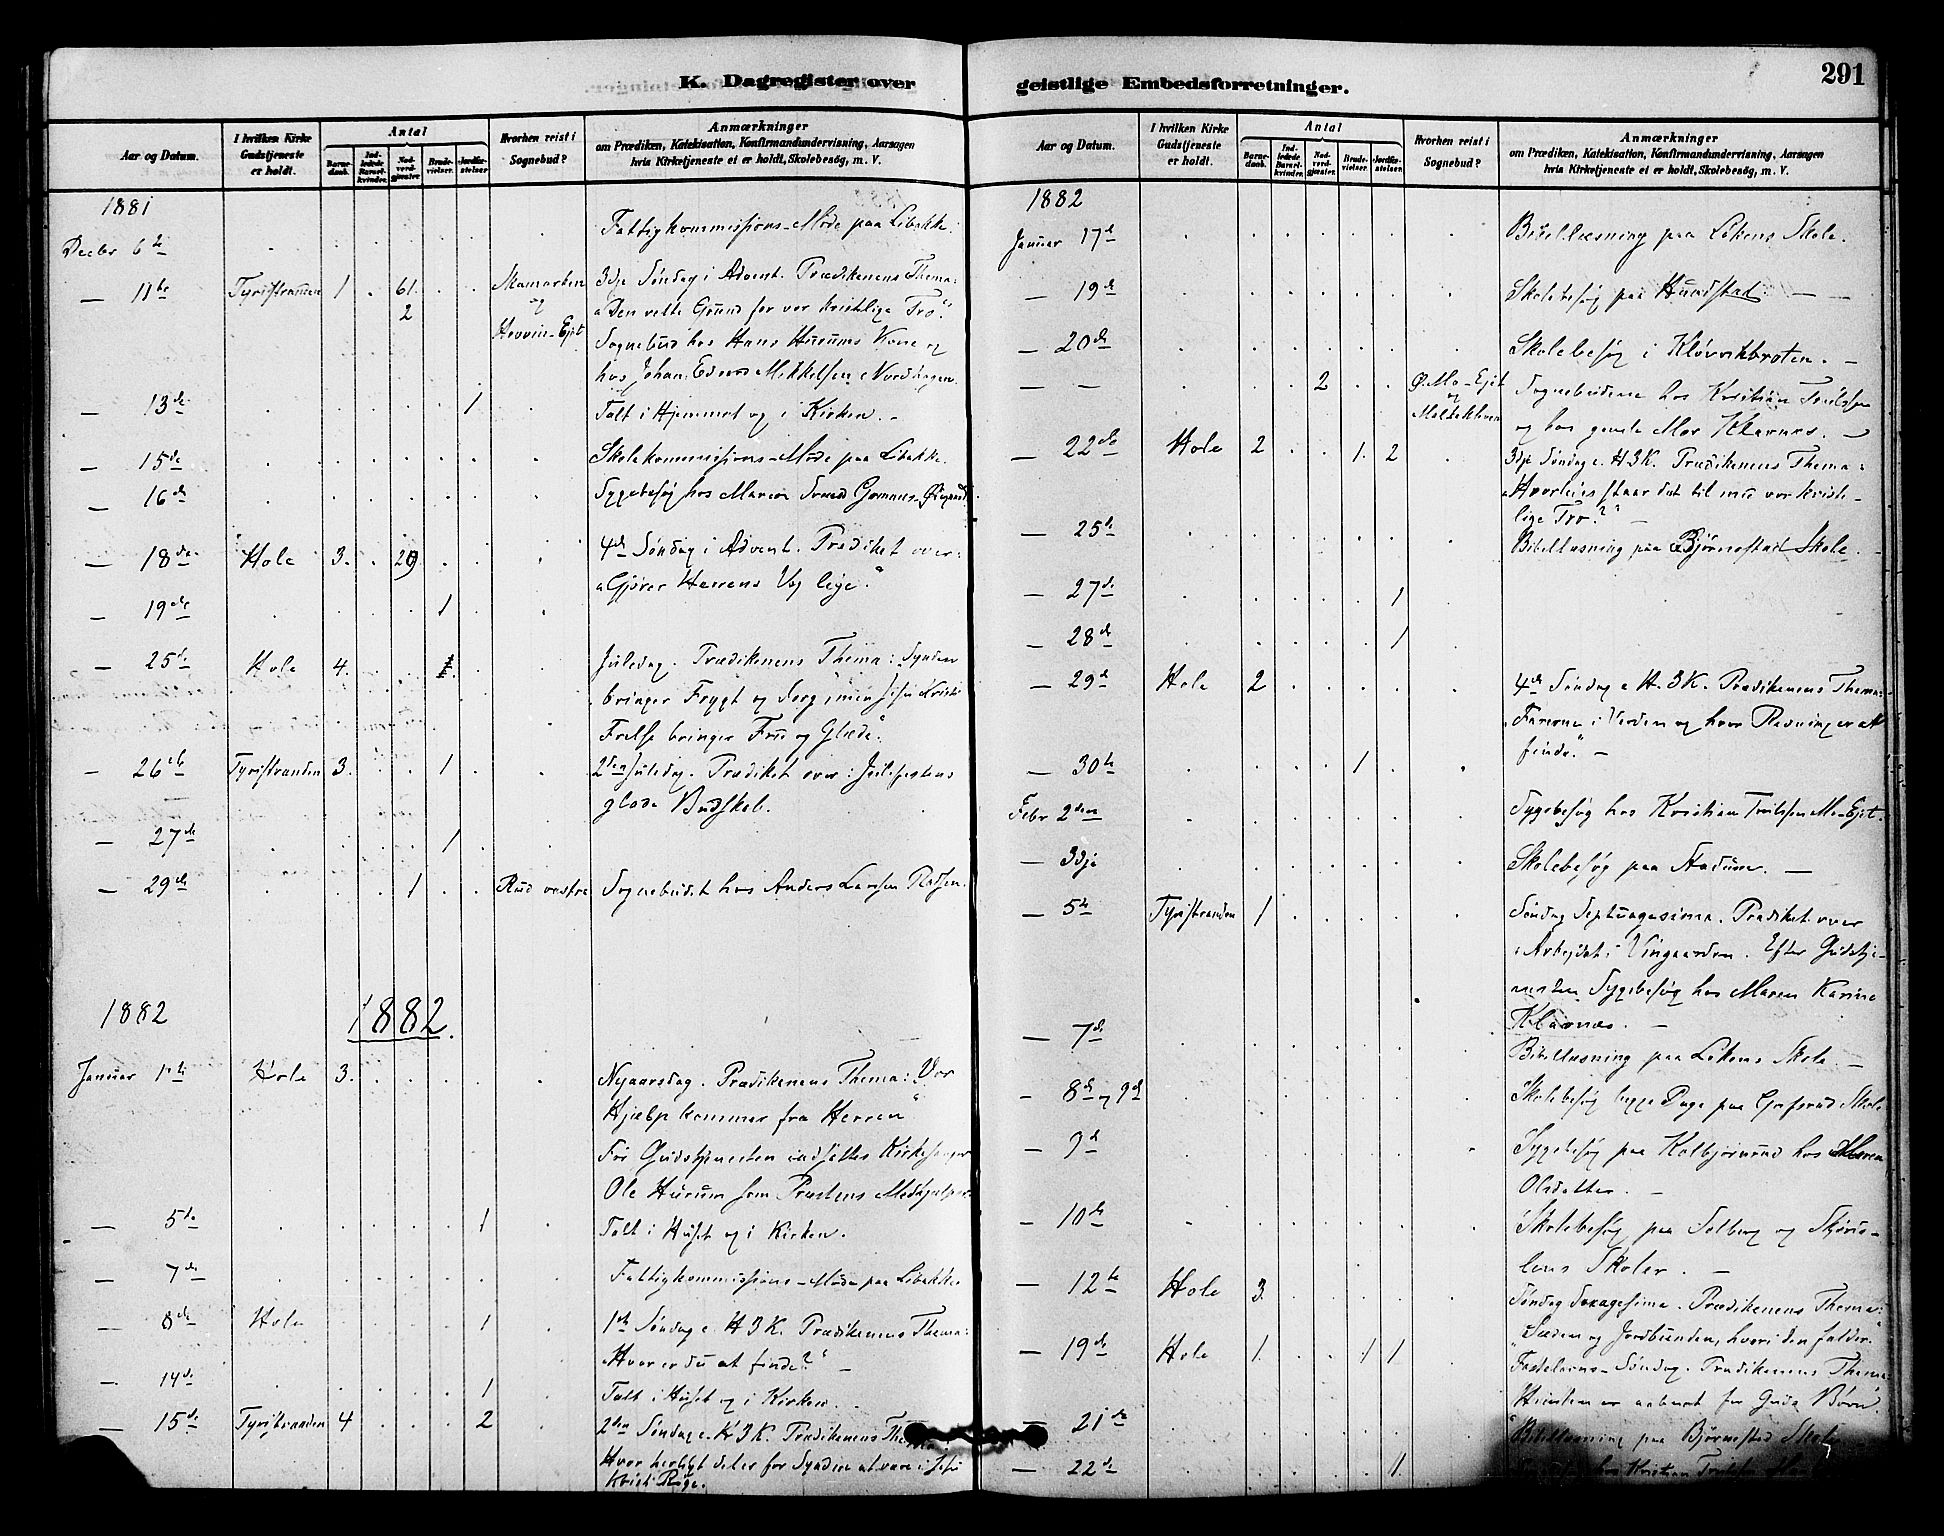 K. Dagregister over
geistlige Embedsforretninger.
291
Aar og Datum.
I hvilken Kirke Gudstjeneste er holdt.
Antal
Barnedaab.
Indledede Barselkvinder.
Nadverdgjæster.
Brudevielser.
Jordfæstelser.
Hvorhen reist i Sognebud?
Anmærkninger
om Prædiken, Katekisation, Konfirmandundervisning, Aarsagen
hvis Kirketjeneste ei er holdt, Skolebesög, m. V.
1881
Decbr 6te Fattigkommissions-Møde paa Libakke.
— 11te Tyristranden 1 61 2 og Hovin-Ejet 3dje Søndag i Advent. Prædikenens Thema:
"Den rette Grund for vor kristelige Tro".
Sognebud hos Hans Hurums Kone og
hos Johan Edvard Mikkelsen
— 13de 1 Talt i Hjemmet og i Kirken. -
— 15de Skolekommissions-Møde paa Libakke.
— 16de Sygebesøg hos
— 18de Hole 3. 29 4de Søndag i Advent. Prædiket over:
"Gjører Herrens Vej lige."
— 19de 1
— 25de Hole 4. 1. Juledag. Prædikenens Thema: Synden
bringer Frygt og Sorg, men Jesu Kristi
Frelse bringer Fred og Glæde".
— 26de Tyristranden 3. 1 2den Juledag. Prædiket over: Julefestens
glade Budskab.
— 27de 1
— 29de 1 Rud vestre Sognebudet hos Anders Larsen
1882 1882.
Januar 1ste Hole 3. Nyaarsdag. Prædikenens Thema: "Vor
Hjælp kommer fra Herren"
Før Gudstjenesten indsattes Kirkesanger
Ole Hurum som Præstens Medhjælper.
— 5te 1 Talt i Huset og i Kirken.
— 7de Fattigkommissions-Møde paa Libakke
— 8de Hole 1 1ste Søndag e. H3K. Prædikenens Thema:
"Hvor er du at finde?" —
— 14de 1 Talt i Huset og i Kirken.
— 15de Tyristranden 4 2 2den Søndag e. H3K. Prædikenens Thema
Hvor herligt det er for Synderen at være i Jesu
Kristi Rige.
Aar og Datum.
I hvilken Kirke Gudstjeneste er holdt.
Antal
Barnedaab.
Indledede Barselkvinder.
Nadverdgjæster.
Brudevielser.
Jordfæstelser.
Hvorhen reist i Sognebud?
Anmærkninger
om Prædiken, Katekisation, Konfirmandundervisning, Aarsagen
hvis Kirketjeneste ei er holdt, Skolebesög, m. V.
1882
Januar 17de Bibellæsning paa Løkens Skole.
— 19de Skolebesøg paa Hundstad. —
— 20de Skolebesøg i Kløvvikbraten. —
— — 2 Ø. Mo-Ejet og Sognebudene hos Kristian Troelssen
og hos gamle Mor Klævnes. —
— 22de Hole 2 1. 2 3dje Søndag e. H3K. Prædikenens Thema:
"Hvorledes staar det til med vor kriste-
lige Tro?" —
— 25de Bibellæsning paa Bjørnestad Skole.
— 27de 1
— 28de 1
— 29de Hole 2 4de Søndag e H.3K. Prædikenens Thema:
"Farerne i Verden og hvor Redning er at
finde". —
— 30te 1
Febr 2den Sygebesøg hos Kristian Troelssen Mo-Ejet.
— 3dje Skolebesøg paa Stadum. —
— 5te Tyristranden 1 Søndag Septuagesima. Prædiket over
"Arbejdet i Vingaarden. Efter Gudstje-
nesten Sygebesøg hos Maren Karine
Klævnes. —
— 7de Bibellæsning paa Løkens Skole. —
— 8de og 9de Skolebesøg begge Dage paa Gjefsrud Skole
— 9de Sygebesøg paa Kolbjørnrud hos
Olsdatter. —
— 10de Skolebesøg paa Solberg og
Skoler. —
— 12te Hole 3 Søndag Sexagesima. Prædikenens Thema:
"Sæden og Jordbunden, hvori den falder."
— 19de Hole 1 1 1 Fastelavns-Søndag. Prædikenens Thema
Himlen er aabnet for Guds Børn.
— 21de Bibellæsning paa Bjørnestad Skole
— 22de 1 hos Kristian